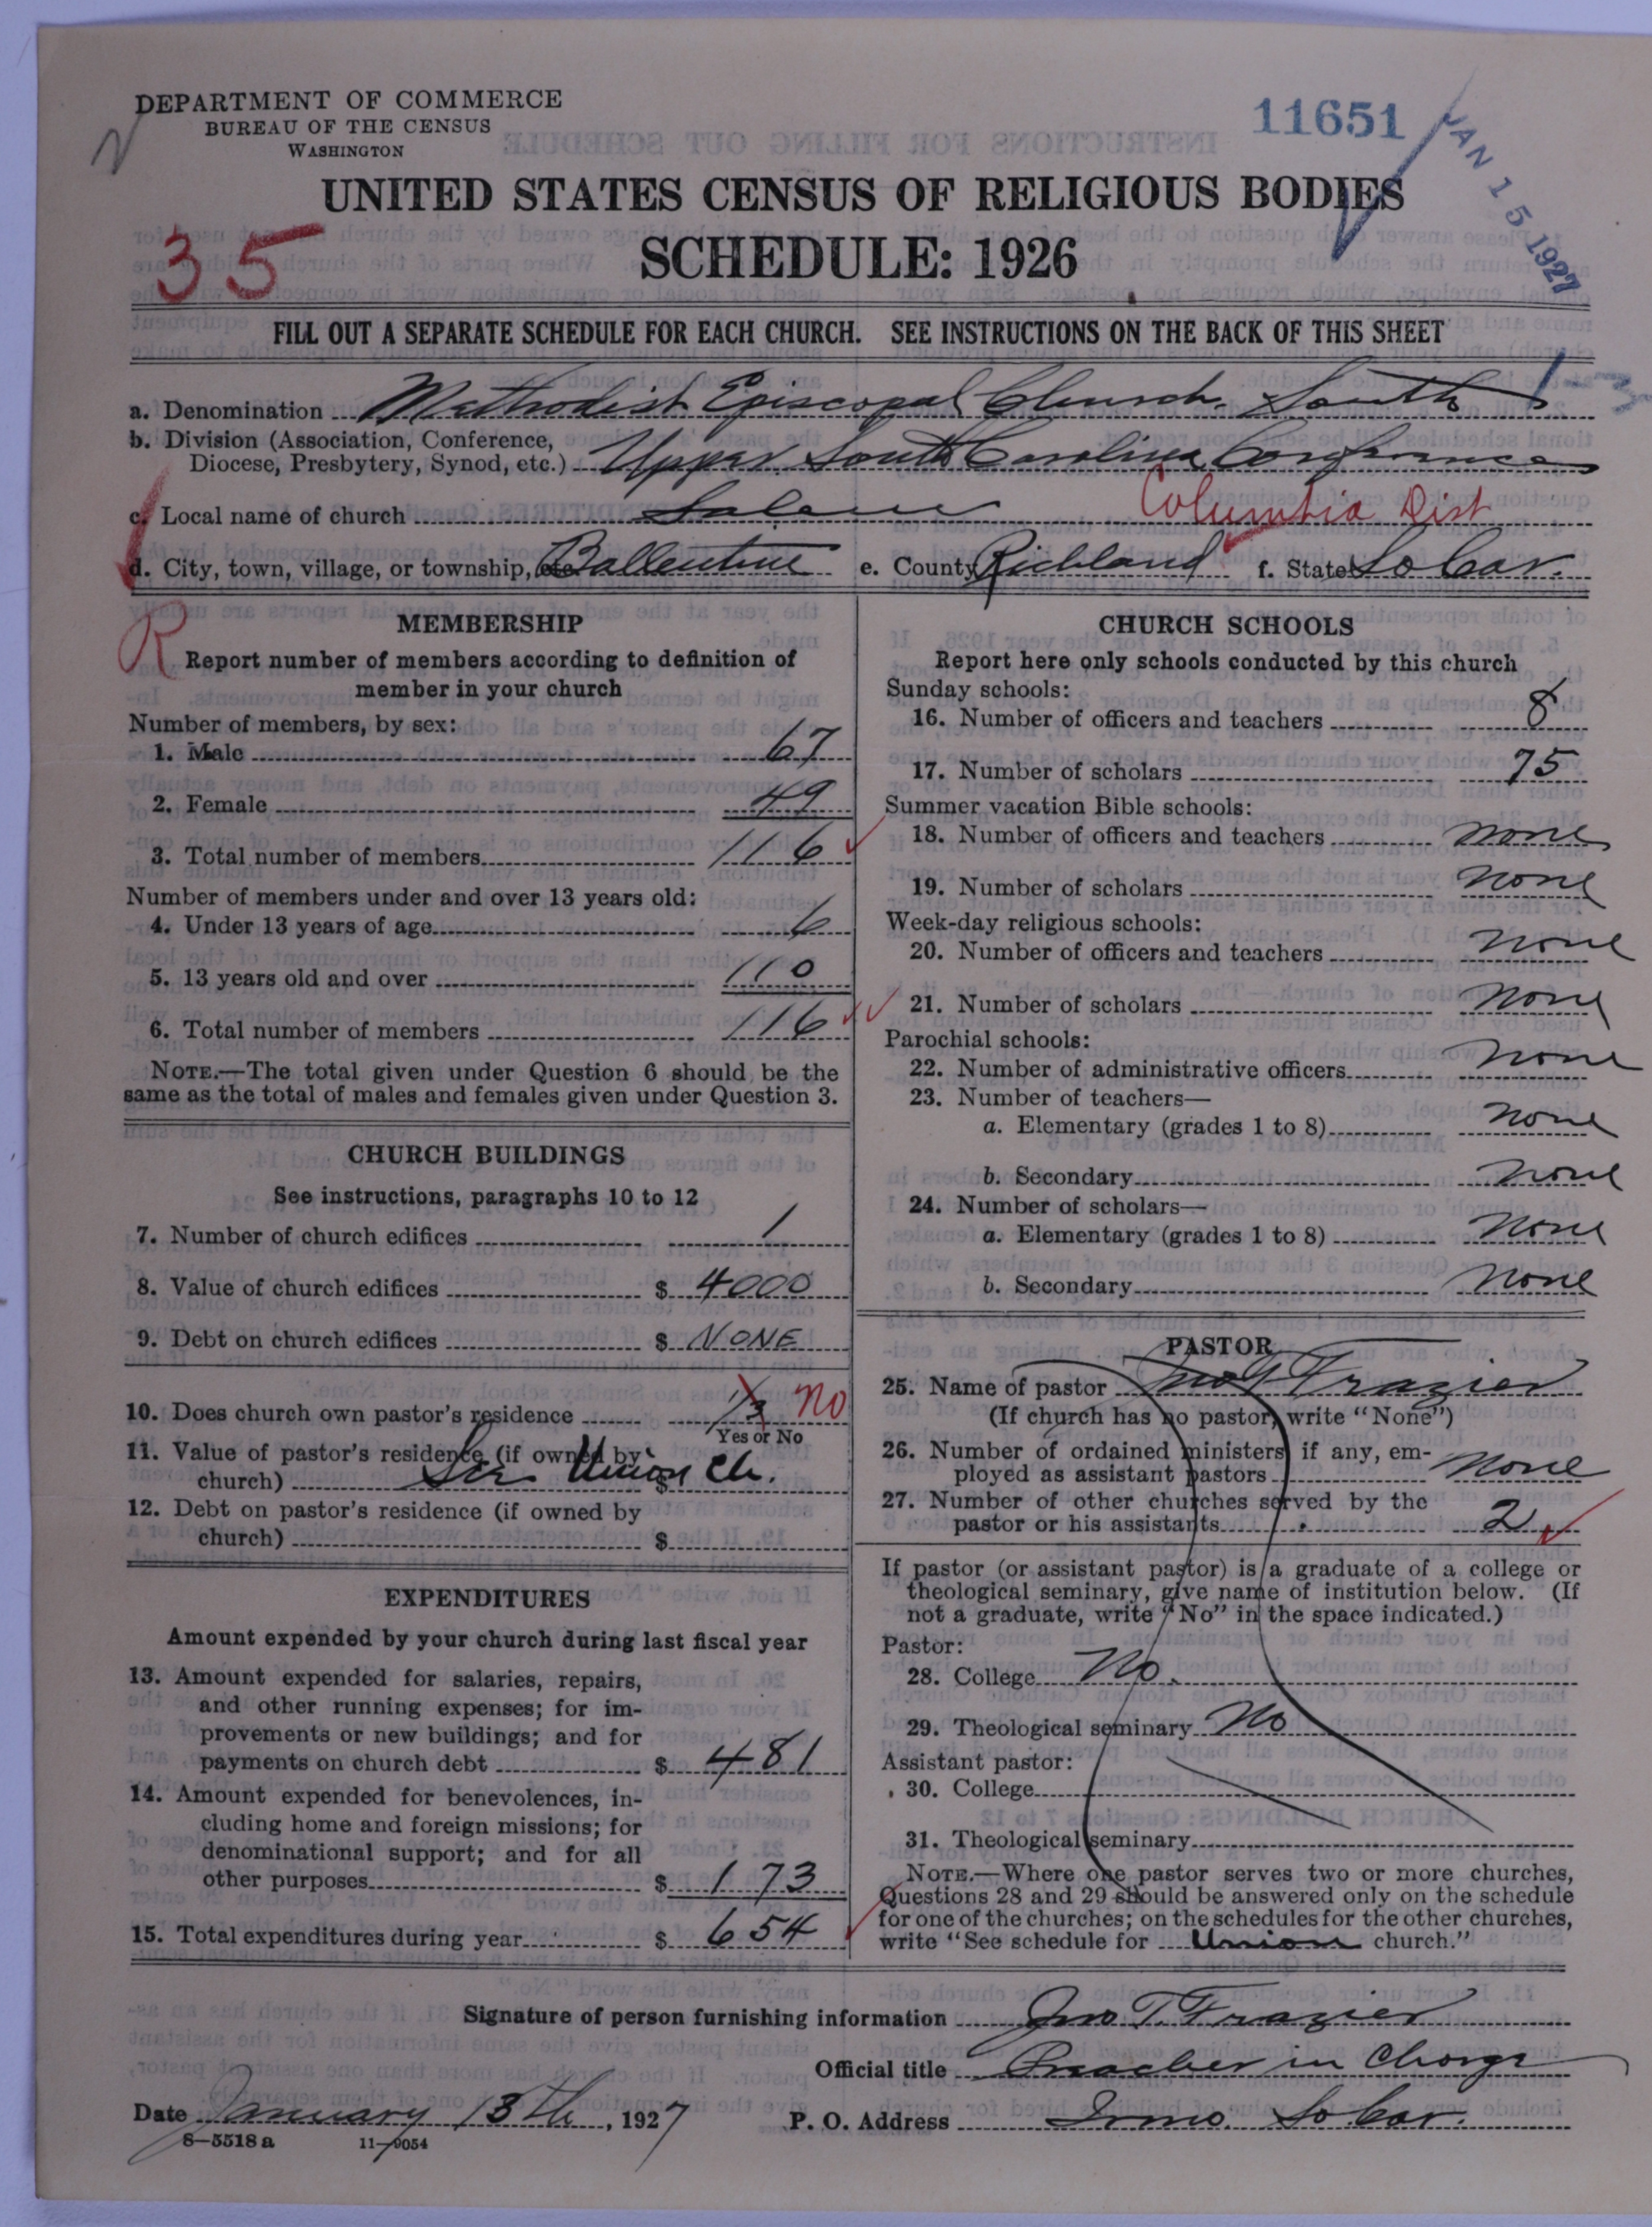 DEPARTMENT OF COMMERCE
BUREAU OF THE CENSUS
WASHINGTON
11651
JAN 15 1927
UNITED STATES CENSUS OF RELIGIOUS BODIES
35
SCHEDULE: 1926
FILL OUT A SEPARATE SCHEDULE FOR EACH CHURCH. SEE INSTRUCTIONS ON THE BACK OF THIS SHEET
1-3
a. Denomination Methodist Episcopal Church South
b. Division (Association, Conference,
Diocese, Presbytery, Synod, etc.) Upper South Carolina Conference
c. Local name of church Salem Columbia Dist
d. City, town, village, or township, etc. Ballentine e. County Richland f. State So Car.
R
MEMBERSHIP
Report number of members according to definition of
member in your church
Number of members, by sex:
1. Male 67
2. Female 49
3. Total number of members 116
Number of members under and over 13 years old:
4. Under 13 years of age 6
5. 13 years old and over 110
6. Total number of members 116
NOTE.—The total given under Question 6 should be the
same as the total of males and females given under Question 3.
CHURCH BUILDINGS
See instructions, paragraphs 10 to 12
7. Number of church edifices 1
8. Value of church edifices $ 4000
9. Debt on church edifices $ NONE
10. Does church own pastor's residence 1/3 No
Yes or No
11. Value of pastor's residence (if owned by
church) See Union Ch. $
12. Debt on pastor's residence (if owned by
church) $
EXPENDITURES
Amount expended by your church during last fiscal year
13. Amount expended for salaries, repairs,
and other running expenses; for im-
provements or new buildings; and for
payments on church debt $ 481
14. Amount expended for benevolences, in-
cluding home and foreign missions; for
denominational support; and for all
other purposes $ 173
15. Total expenditures during year $ 654
CHURCH SCHOOLS
Report here only schools conducted by this church
Sunday schools:
16. Number of officers and teachers 8
17. Number of scholars 75
Summer vacation Bible schools:
18. Number of officers and teachers none
19. Number of scholars none
Week-day religious schools:
20. Number of officers and teachers none
21. Number of scholars none
Parochial schools:
22. Number of administrative officers none
23. Number of teachers—
a. Elementary (grades 1 to 8) none
b. Secondary none
24. Number of scholars—
a. Elementary (grades 1 to 8) none
b. Secondary none
PASTOR
25. Name of pastor Jno T Frazier
(If church has no pastor, write "None")
26. Number of ordained ministers, if any, em-
ployed as assistant pastors none
27. Number of other churches served by the
pastor or his assistants 2
If pastor (or assistant pastor) is a graduate of a college or
theological seminary, give name of institution below. (If
not a graduate, write "No" in the space indicated.)
Pastor:
28. College No.
29. Theological seminary No
Assistant pastor:
30. College
31. Theological seminary
NOTE.—Where one pastor serves two or more churches,
Questions 28 and 29 should be answered only on the schedule
for one of the churches; on the schedules for the other churches,
write "See schedule for Union church."
Signature of person furnishing information Jno T. Frazier
Official title Preacher in Charge
Date January 13th, 1927 P. O. Address Irmo. So Car.
8—5518 a 11—9054